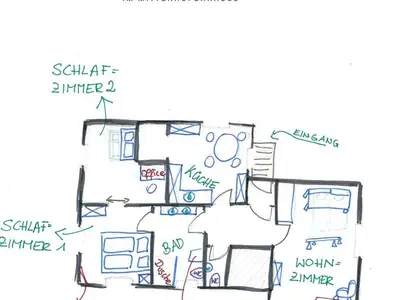 SCHLAF=
ZIMMER 2
EINGANG
Office
KÜCHE
SCHLAF=
ZIMMER 1
BAD
Dusche
WC
WC
WOHN=
ZIMMER